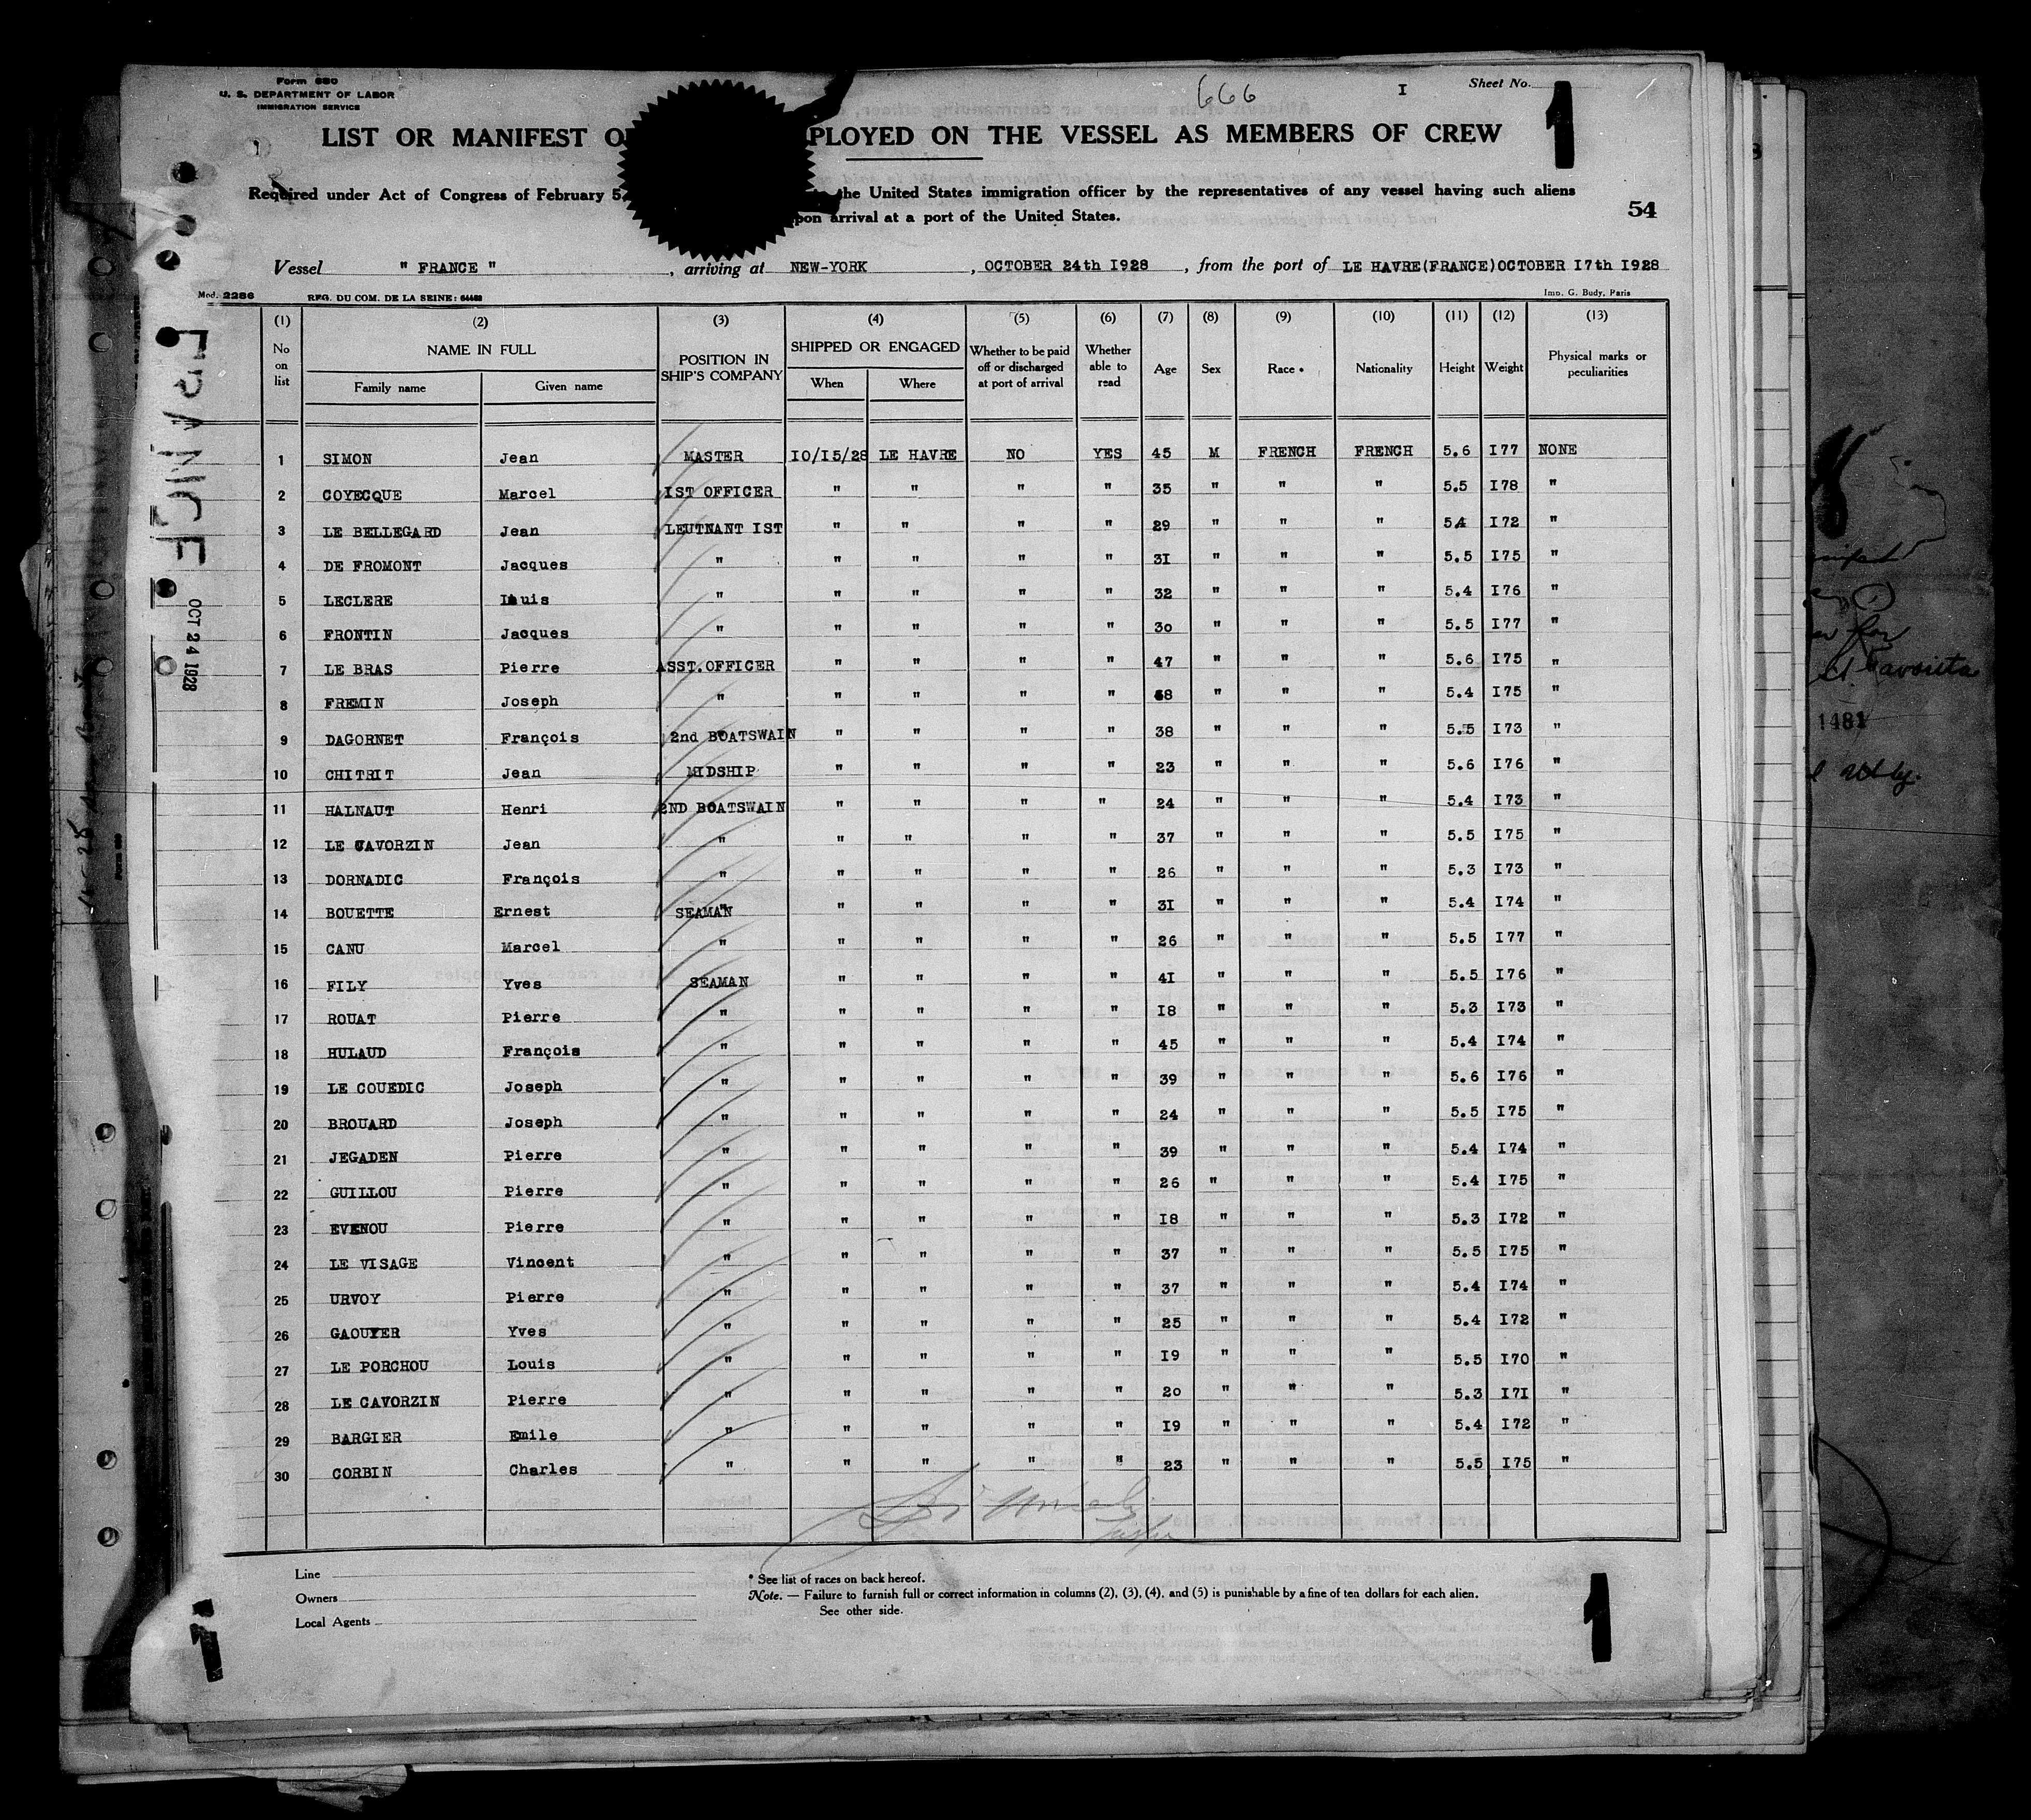 Form 680
U. S. DEPARTMENT OF LABOR
IMMIGRATION SERVICE
666
I
Sheet No.
1
LIST OR MANIFEST O PLOYED ON THE VESSEL AS MEMBERS OF CREW
Required under Act of Congress of February 5, the United States immigration officer by the representatives of any vessel having such aliens
pon arrival at a port of the United States.
54
Vessel " FRANCE " , arriving at NEW-YORK , OCTOBER 24th 1928 , from the port of LE HAVRE(FRANCE)OCTOBER 17th 1928
Mod. 2286 REG. DU COM. DE LA SEINE: 64462 Imp. G. Budy, Paris
(1) (2) (3) (4) (5) (6) (7) (8) (9) (10) (11) (12) (13)
No on list NAME IN FULL Family name Given name POSITION IN SHIP'S COMPANY SHIPPED OR ENGAGED When Where Whether to be paid off or discharged at port of arrival Whether able to read Age Sex Race * Nationality Height Weight Physical marks or peculiarities
1 SIMON Jean MASTER 10/15/28 LE HAVRE NO YES 45 M FRENCH FRENCH 5.6 I77 NONE
2 COYECQUE Marcel IST OFFICER " " " " 35 " " " 5.5 I78 "
3 LE BELLEGARD Jean LEUTNANT IST " " " " 29 " " " 5.4 I72 "
4 DE FROMONT Jacques " " " " " 3I " " " 5.5 I75 "
5 LECLERE Louis " " " " " 32 " " " 5.4 I76 "
6 FRONTIN Jacques " " " " " 30 " " " 5.5 I77 "
7 LE BRAS Pierre ASST.OFFICER " " " " 47 " " " 5.6 I75 "
8 FREMIN Joseph " " " " " 68 " " " 5.4 I75 "
9 DAGORNET François 2nd BOATSWAIN " " " " 38 " " " 5.5 I73 "
10 CHITRIT Jean MIDSHIP " " " " 23 " " " 5.6 I76 "
11 HALNAUT Henri 2ND BOATSWAIN " " " " 24 " " " 5.4 I73 "
12 LE CAVORZIN Jean " " " " " 37 " " " 5.5 I75 "
13 DORNADIC François " " " " " 26 " " " 5.3 I73 "
14 BOUETTE Ernest SEAMAN " " " " 3I " " " 5.4 I74 "
15 CANU Marcel " " " " " 26 " " " 5.5 I77 "
16 FILY Yves SEAMAN " " " " 4I " " " 5.5 I76 "
17 ROUAT Pierre " " " " " I8 " " " 5.3 I73 "
18 HULAUD François " " " " " 45 " " " 5.4 I74 "
19 LE COUEDIC Joseph " " " " " 39 " " " 5.6 I76 "
20 BROUARD Joseph " " " " " 24 " " " 5.5 I75 "
21 JEGADEN Pierre " " " " " 39 " " " 5.4 I74 "
22 GUILLOU Pierre " " " " " 26 " " " 5.4 I75 "
23 EVENOU Pierre " " " " " I8 " " " 5.3 I72 "
24 LE VISAGE Vincent " " " " " 37 " " " 5.5 I75 "
25 URVOY Pierre " " " " " 37 " " " 5.4 I74 "
26 GAOUYER Yves " " " " " 25 " " " 5.4 I72 "
27 LE PORCHOU Louis " " " " " I9 " " " 5.5 I70 "
28 LE CAVORZIN Pierre " " " " " 20 " " " 5.3 I7I "
29 BARGIER Emile " " " " " I9 " " " 5.4 I72 "
30 CORBIN Charles " " " " " 23 " " " 5.5 I75 "
Line
Owners
Local Agents
* See list of races on back hereof.
Note. — Failure to furnish full or correct information in columns (2), (3), (4), and (5) is punishable by a fine of ten dollars for each alien.
See other side.
1
FRANCE.
OCT 24 1928
1481